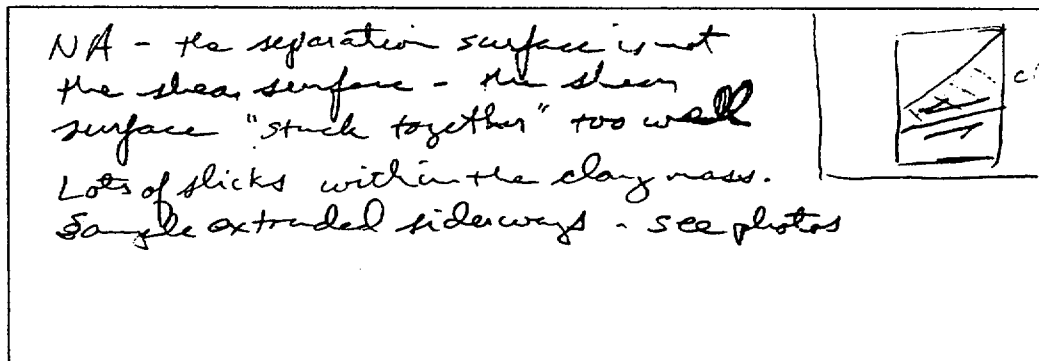 NA - the separation surface is not
the shear surface - the shear
surface "stuck together" too well
Lots of slicks within the clay mass.
Sample extruded sideways - see photos